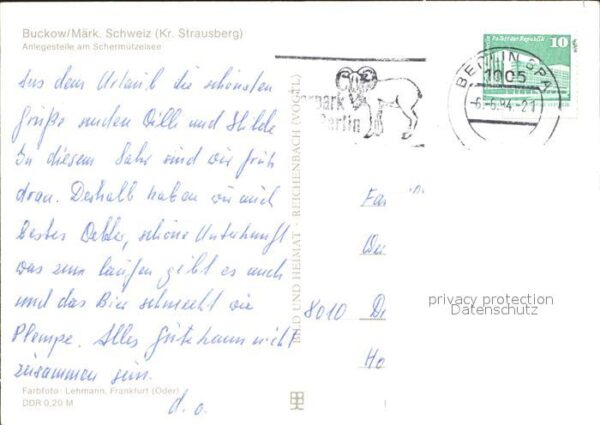 Buckow/Märk. Schweiz (Kr. Strausberg)
Anlegestelle am Schermützelsee
Aus dem Urlaub die schönsten
Grüße senden Willi und Hilde
In diesem Jahr sind wir früh
dran. Deshalb haben wir auch
bestes Wetter, schöne Unterkunft
was zum laufen gibt es auch
und das Bier schmeckt wie
Plempe. Alles Gute kann nicht
zusammen sein.
d. o.
Farbfoto: Lehmann, Frankfurt (Oder)
DDR 0,20 M
BILD UND HEIMAT · REICHENBACH (VOGTL)
erpark
Berlin
BERLIN SPA
1005
-6.-6.84-21
Palast der Republik
10
8010
privacy protection
Datenschutz